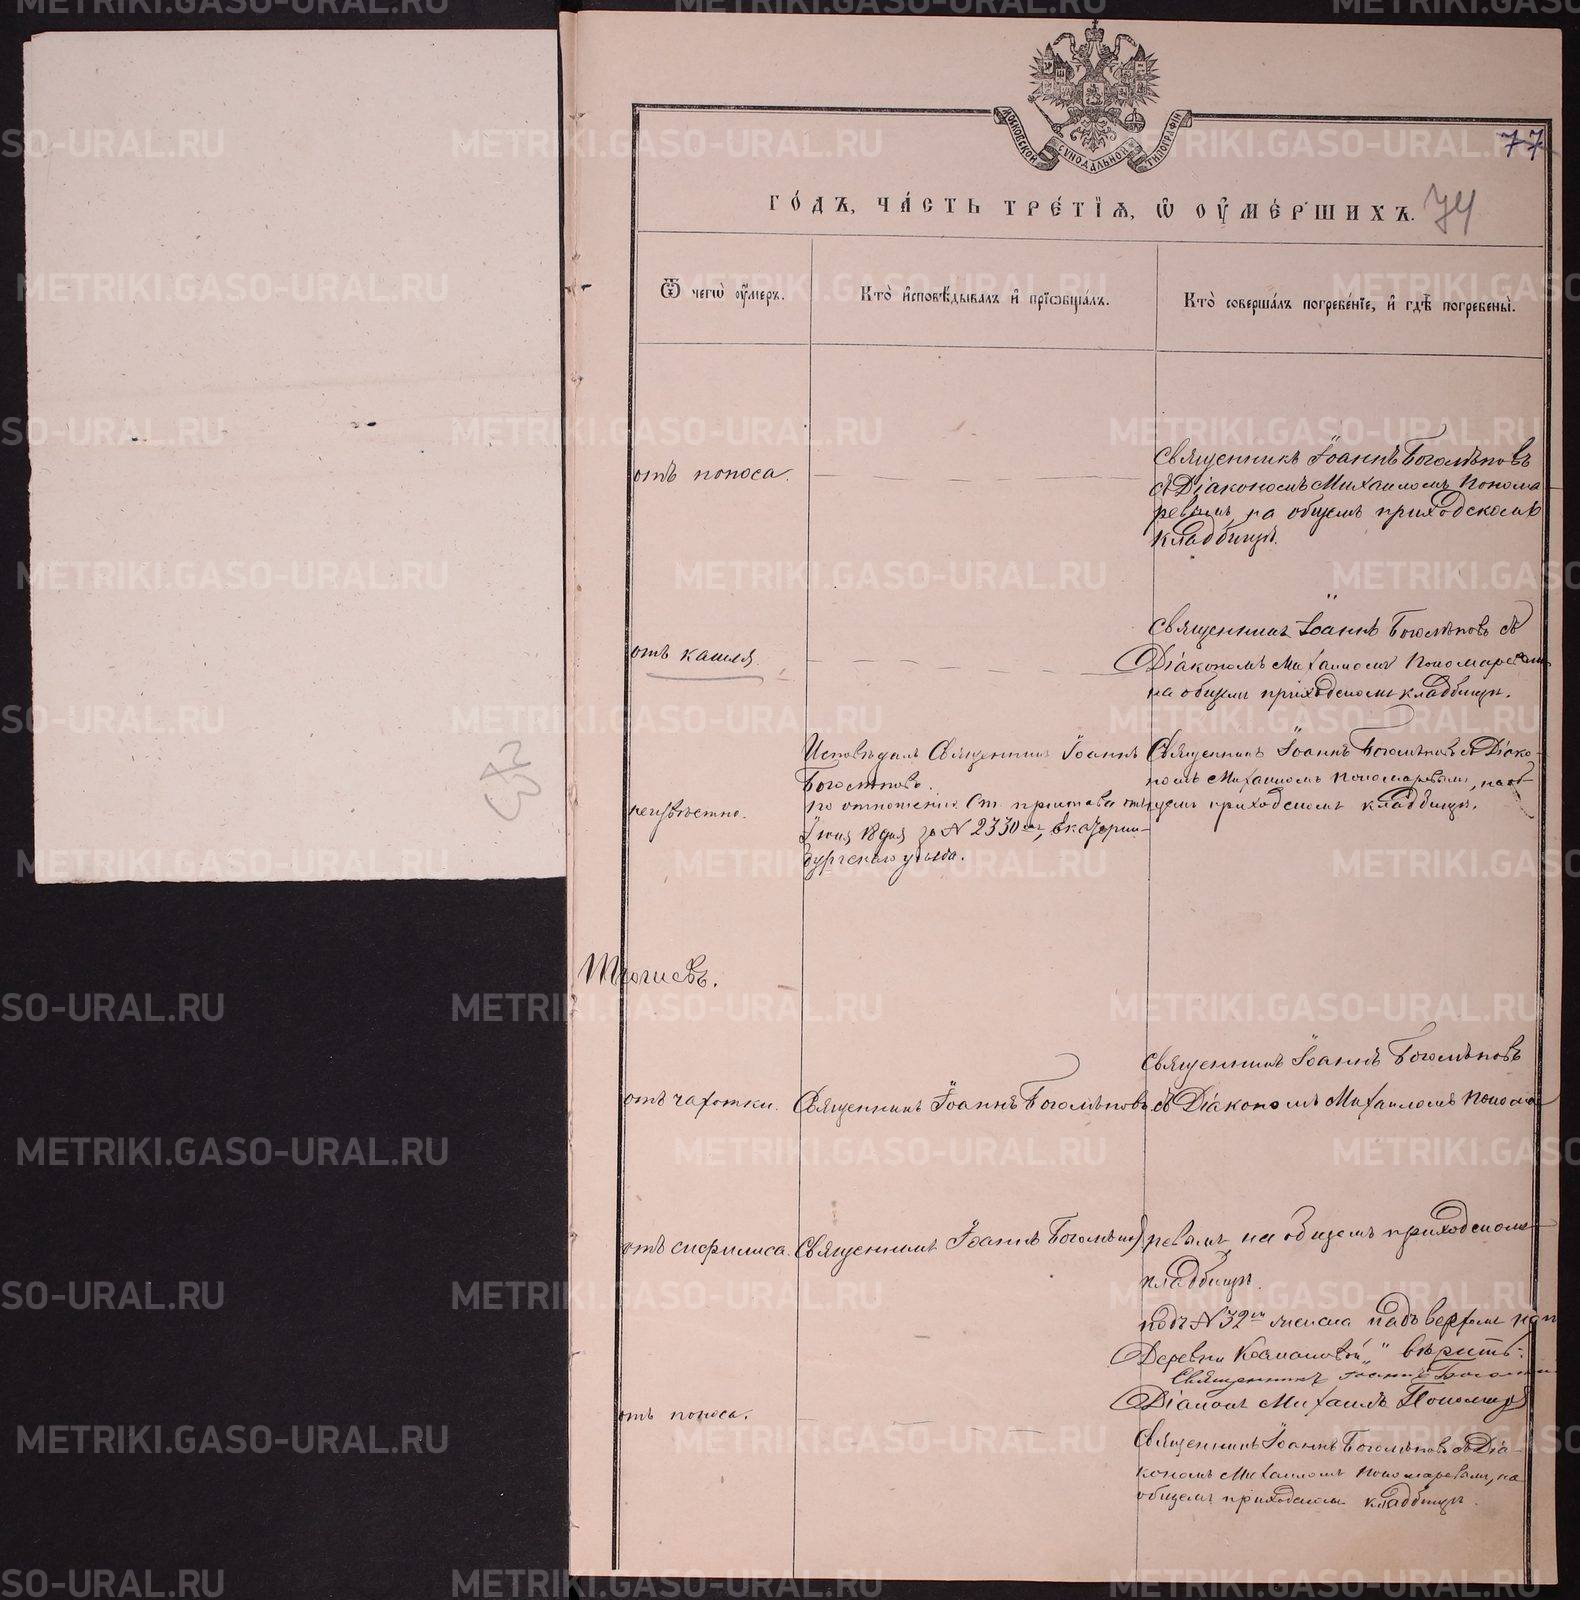 МОСКОВСКОЙ СѴНОДАЛЬНОЙ ТИПОГРАФІИ
77
ГО́ДЪ, ЧА́СТЬ ТРЕ́ТІѦ, Ѡ ОУ҆МЕ́РШИХЪ.
74
Ѿ чегѡ̀ ᲂу҆́меръ.
Кто̀ и҆сповѣ́дывалъ и҆ прїѡбща́лъ.
Кто̀ соверша́лъ погребе́нїе, и҆ гдѣ̀ погребены̀.
отъ поноса.
Священникъ Іоаннъ Боголѣповъ
съ Діакономъ Михаиломъ Понома
ревымъ на общемъ приходскомъ
кладбищѣ.
отъ кашля.
Священникъ Іоаннъ Боголѣповъ съ
Діакономъ Михаиломъ Пономаревымъ
на общемъ приходскомъ кладбищѣ.
неизвѣстно.
Исповѣдалъ Священникъ Іоаннъ
Боголѣповъ.
по отношенію Ст. пристава отъ
Іюня 18 дня за № 2330мъ, Екатерин-
бургскаго уѣзда.
Священникъ Іоаннъ Боголѣповъ съ Діако-
номъ Михаиломъ Пономаревымъ, на об-
щемъ приходскомъ кладбищѣ.
отъ чахотки.
Священникъ Іоаннъ Боголѣповъ
Священникъ Іоаннъ Боголѣповъ
съ Діакономъ Михаиломъ Понома
отъ сифилиса.
Священникъ Іоаннъ Боголѣповъ
ревымъ на общемъ приходскомъ
кладбищѣ.
подъ № 32мъ надъ верхомъ
Деревни вѣрить:
Священникъ Іоаннъ
Діаконъ Михаилъ Пономаревъ
отъ поноса.
Священникъ Іоаннъ Боголѣповъ съ Діа-
кономъ Михаиломъ Пономаревымъ, на
общемъ приходскомъ кладбищѣ.
METRIKI.GASO-URAL.RU